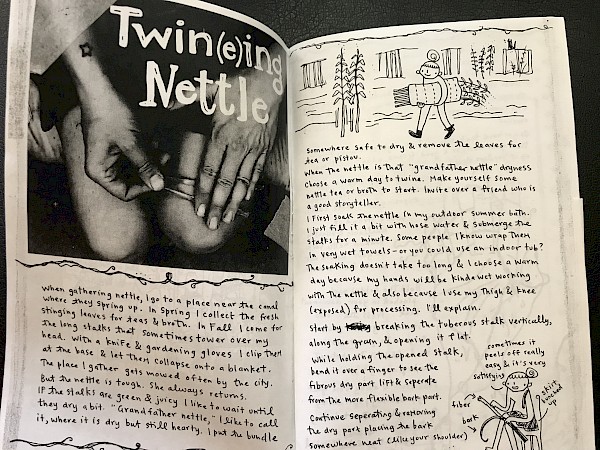 Twin(e)ing
Nettle
When gathering nettle, I go to a place near the canal
where they spring up. In Spring I collect the fresh
stinging leaves for teas & broth. In Fall I come for
the long stalks that sometimes tower over my
head. With a knife & gardening gloves I clip them
at the base & let them collapse onto a blanket.
The place I gather gets mowed often by the city.
But the nettle is tough. She always returns.
If the stalks are green & juicy I like to wait until
they dry a bit. "Grandfather nettle," I like to call
it, where it is dry but still hearty. I put the bundle
somewhere safe to dry & remove the leaves for
tea or pistou.
When the nettle is that "grandfather nettle" dryness
choose a warm day to twine. Make yourself some
nettle tea or broth to start. Invite over a friend who is
a good storyteller.
I first soak the nettle in my outdoor summer bath.
I just fill it a bit with hose water & submerge the
stalks for a minute. Some people I know wrap them
in very wet towels - or you could use an indoor tub?
The soaking doesn't take too long & I choose a warm
day because my hands will be kinda wet working
with the nettle & also because I use my thigh & knee
(exposed) for processing. I'll explain.
Start by breaking the tuberous stalk vertically,
along the grain, & opening it flat.
While holding the opened stalk,
bend it over a finger to see the
fibrous dry part lift & seperate
from the more flexible bark part.
Continue seperating & removing
the dry part placing the bark
somewhere neat (like your shoulder)
sometimes it
peels off really
easy & it's very
satisfying
fiber
bark
skirt
hiked
up